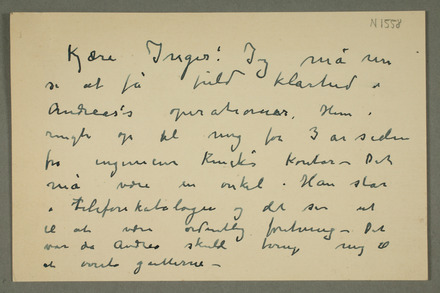 N 1558
Kjære Inger! Jeg må nu
se at få fuld klarhed i
Andreas's operationer. Han
ringte op til mig for 3 år siden
fra ingeniør kontor – Det
må være en onkel. Han står
i telefonkatalogen og det ser ut
til at være ordentlig forretning – Det
var da Andreas skulde bringe mig til
at